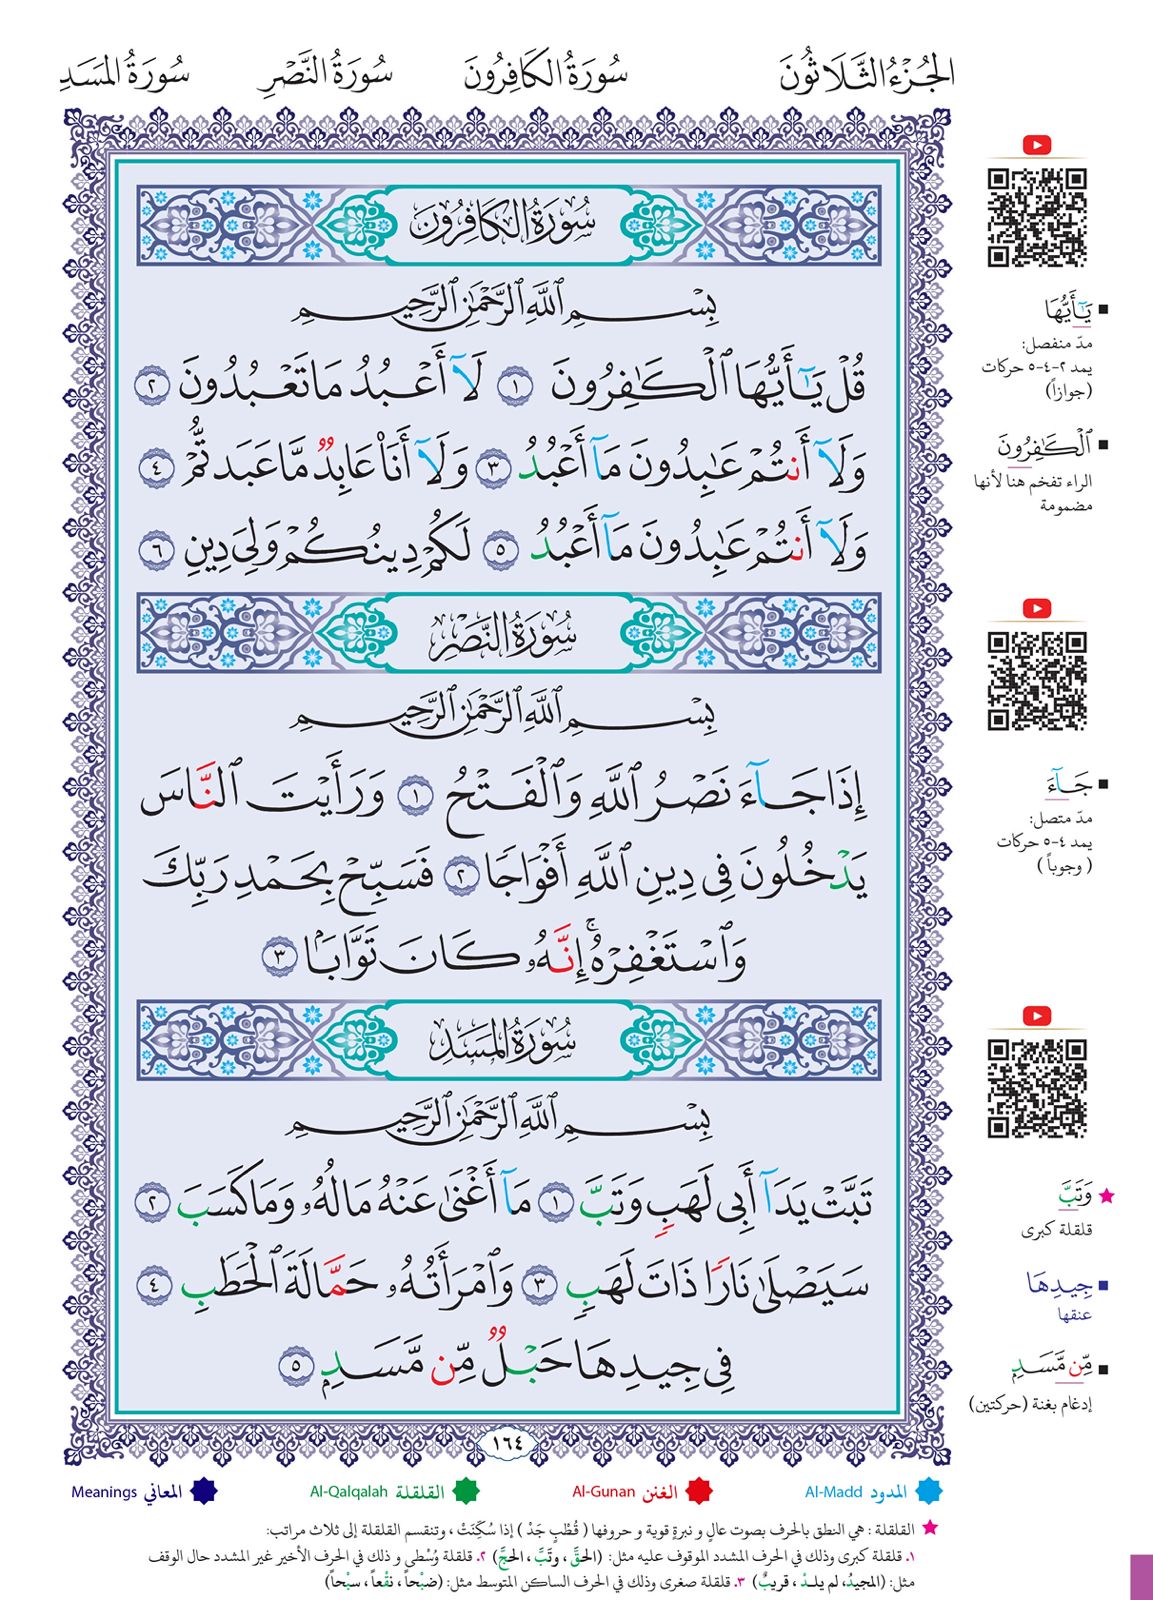 الجُزْءُ الثَّلَاثُونَ سُورَةُ الكَافِرُونَ سُورَةُ النَّصْرِ سُورَةُ المَسَدِ
سُورَةُ الكَافِرُونَ
بِسْمِ ٱللَّهِ ٱلرَّحْمَٰنِ ٱلرَّحِيمِ
قُلْ يَـٰٓأَيُّهَا ٱلْكَـٰفِرُونَ ١ لَآ أَعْبُدُ مَا تَعْبُدُونَ ٢
وَلَآ أَنتُمْ عَـٰبِدُونَ مَآ أَعْبُدُ ٣ وَلَآ أَنَا۠ عَابِدٌ مَّا عَبَدتُّمْ ٤
وَلَآ أَنتُمْ عَـٰبِدُونَ مَآ أَعْبُدُ ٥ لَكُمْ دِينُكُمْ وَلِىَ دِينِ ٦
سُورَةُ النَّصْرِ
بِسْمِ ٱللَّهِ ٱلرَّحْمَٰنِ ٱلرَّحِيمِ
إِذَا جَآءَ نَصْرُ ٱللَّهِ وَٱلْفَتْحُ ١ وَرَأَيْتَ ٱلنَّاسَ
يَدْخُلُونَ فِى دِينِ ٱللَّهِ أَفْوَاجًا ٢ فَسَبِّحْ بِحَمْدِ رَبِّكَ
وَٱسْتَغْفِرْهُ ۚ إِنَّهُۥ كَانَ تَوَّابًۢا ٣
سُورَةُ المَسَدِ
بِسْمِ ٱللَّهِ ٱلرَّحْمَٰنِ ٱلرَّحِيمِ
تَبَّتْ يَدَآ أَبِى لَهَبٍ وَتَبَّ ١ مَآ أَغْنَىٰ عَنْهُ مَالُهُۥ وَمَا كَسَبَ ٢
سَيَصْلَىٰ نَارًا ذَاتَ لَهَبٍ ٣ وَٱمْرَأَتُهُۥ حَمَّالَةَ ٱلْحَطَبِ ٤
فِى جِيدِهَا حَبْلٌ مِّن مَّسَدٍۭ ٥
١٦٤
يَـٰٓأَيُّهَا
مدّ منفصل:
يمد ٢-٤-٥ حركات
(جوازاً)
ٱلْكَـٰفِرُونَ
الراء تفخم هنا لأنها
مضمومة
جَآءَ
مدّ متصل:
يمد ٤-٥ حركات
( وجوباً )
وَتَبَّ
قلقلة كبرى
جِيدِهَا
عنقها
مِّن مَّسَدٍۭ
إدغام بغنة (حركتين)
المدود Al-Madd الغنن Al-Gunan القلقلة Al-Qalqalah المعاني Meanings
القلقلة : هي النطق بالحرف بصوت عالٍ و نبرةٍ قوية و حروفها ( قُطْبٍ جَدْ ) إذا سُكِّنَتْ ، وتنقسم القلقلة إلى ثلاث مراتب:
١. قلقلة كبرى وذلك في الحرف المشدد الموقوف عليه مثل: (الحقَّ ، وتَبَّ ، الحجَّ) ٢. قلقلة وُسْطى و ذلك في الحرف الأخير غير المشدد حال الوقف
مثل: (المجيدُ، لم يلدْ ، قريبٌ) ٣. قلقلة صغرى وذلك في الحرف الساكن المتوسط مثل: (ضبْحاً ، نقْعاً ، سبْحاً)